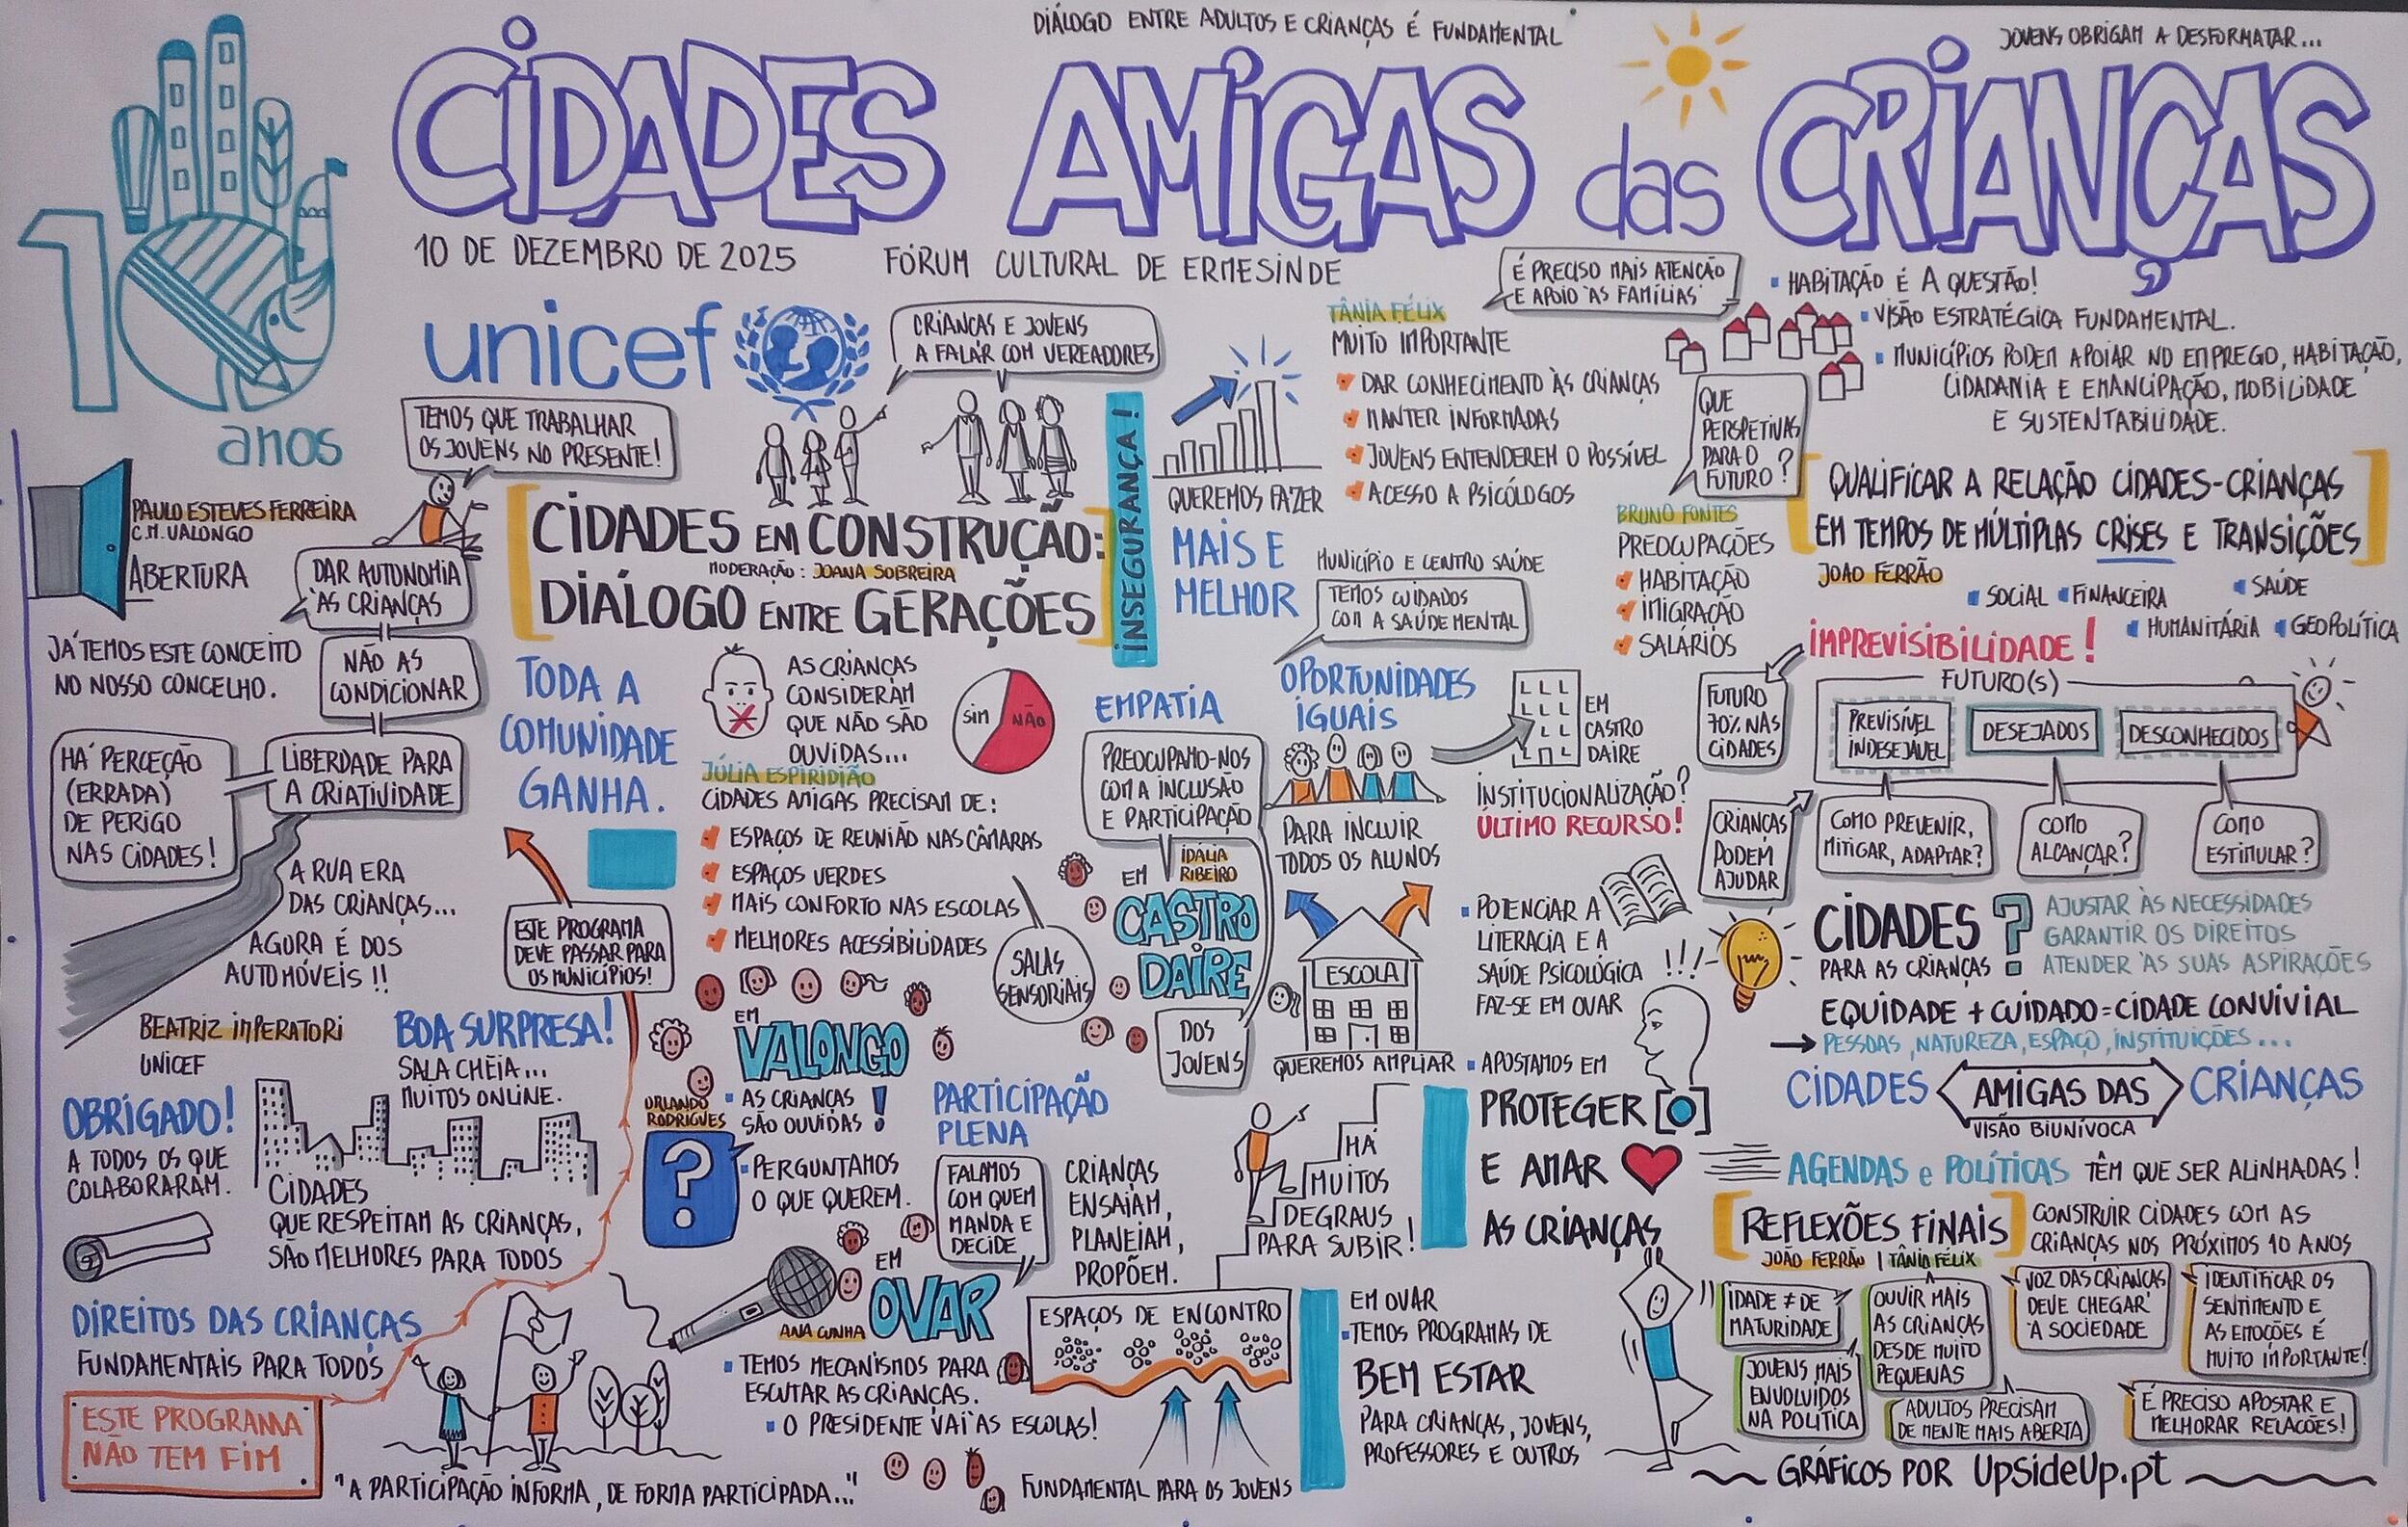 DIÁLOGO ENTRE ADULTOS E CRIANÇAS É FUNDAMENTAL
JOVENS OBRIGAM A DESFORMATAR...
CIDADES AMIGAS das CRIANÇAS
10
anos
10 DE DEZEMBRO DE 2025
FÓRUM CULTURAL DE ERMESINDE
unicef
TEMOS QUE TRABALHAR
OS JOVENS NO PRESENTE!
PAULO ESTEVES FERREIRA
C.M. VALONGO
ABERTURA
DAR AUTONOMIA
ÀS CRIANÇAS
JÁ TEMOS ESTE CONCEITO
NO NOSSO CONCELHO.
NÃO AS
CONDICIONAR
LIBERDADE PARA
A CRIATIVIDADE
HÁ PERCEÇÃO
(ERRADA)
DE PERIGO
NAS CIDADES!
A RUA ERA
DAS CRIANÇAS...
AGORA É DOS
AUTOMÓVEIS!!
BEATRIZ IMPERATORI
UNICEF
BOA SURPRESA!
SALA CHEIA...
MUITOS ONLINE.
OBRIGADO!
A TODOS OS QUE
COLABORARAM.
CIDADES
QUE RESPEITAM AS CRIANÇAS,
SÃO MELHORES PARA TODOS
DIREITOS DAS CRIANÇAS
FUNDAMENTAIS PARA TODOS
ESTE PROGRAMA
NÃO TEM FIM
"A PARTICIPAÇÃO INFORMA, DE FORMA PARTICIPADA..."
CRIANÇAS E JOVENS
A FALAR COM VEREADORES
CIDADES EM CONSTRUÇÃO:
MODERAÇÃO: JOANA SOBREIRA
DIÁLOGO ENTRE GERAÇÕES
INSEGURANÇA!
TODA A
COMUNIDADE
GANHA.
ESTE PROGRAMA
DEVE PASSAR PARA
OS MUNICÍPIOS!
AS CRIANÇAS
CONSIDERAM
QUE NÃO SÃO
OUVIDAS...
SIM NÃO
JÚLIA ESPIRIDIÃO
CIDADES AMIGAS PRECISAM DE:
ESPAÇOS DE REUNIÃO NAS CÂMARAS
ESPAÇOS VERDES
MAIS CONFORTO NAS ESCOLAS
MELHORES ACESSIBILIDADES
SALAS
SENSORIAIS
EM
VALONGO
ORLANDO
RODRIGUES
AS CRIANÇAS
SÃO OUVIDAS!
?
PERGUNTAMOS
O QUE QUEREM.
PARTICIPAÇÃO
PLENA
FALAMOS
COM QUEM
MANDA E
DECIDE
CRIANÇAS
ENSAIAM,
PLANEIAM,
PROPÕEM.
EM
OVAR
ANA CUNHA
TEMOS MECANISMOS PARA
ESCUTAR AS CRIANÇAS.
O PRESIDENTE VAI ÀS ESCOLAS!
ESPAÇOS DE ENCONTRO
FUNDAMENTAL PARA OS JOVENS
HÁ
MUITOS
DEGRAUS
PARA SUBIR!
QUEREMOS FAZER
MAIS E
MELHOR
TÂNIA FÉLIX
MUITO IMPORTANTE
DAR CONHECIMENTO ÀS CRIANÇAS
MANTER INFORMADAS
JOVENS ENTENDEREM O POSSÍVEL
ACESSO A PSICÓLOGOS
É PRECISO MAIS ATENÇÃO
E APOIO ÀS FAMÍLIAS
MUNICÍPIO E CENTRO SAÚDE
TEMOS CUIDADOS
COM A SAÚDE MENTAL
EMPATIA
PREOCUPAMO-NOS
COM A INCLUSÃO
E PARTICIPAÇÃO
IDÁLIA
RIBEIRO
EM
CASTRO
DAIRE
DOS
JOVENS
OPORTUNIDADES
IGUAIS
PARA INCLUIR
TODOS OS ALUNOS
ESCOLA
QUEREMOS AMPLIAR
EM
CASTRO
DAIRE
INSTITUCIONALIZAÇÃO?
ÚLTIMO RECURSO!
POTENCIAR A
LITERACIA E A
SAÚDE PSICOLÓGICA
FAZ-SE EM OVAR
!!!
APOSTAMOS EM
PROTEGER
E AMAR
AS CRIANÇAS
EM OVAR
TEMOS PROGRAMAS DE
BEM ESTAR
PARA CRIANÇAS, JOVENS,
PROFESSORES E OUTROS
QUE
PERSPETIVAS
PARA O
FUTURO?
BRUNO FONTES
PREOCUPAÇÕES
HABITAÇÃO
IMIGRAÇÃO
SALÁRIOS
HABITAÇÃO É A QUESTÃO!
VISÃO ESTRATÉGICA FUNDAMENTAL.
MUNICÍPIOS PODEM APOIAR NO EMPREGO, HABITAÇÃO,
CIDADANIA E EMANCIPAÇÃO, MOBILIDADE
E SUSTENTABILIDADE.
QUALIFICAR A RELAÇÃO CIDADES-CRIANÇAS
EM TEMPOS DE MÚLTIPLAS CRISES E TRANSIÇÕES
JOAO FERRÃO
SOCIAL FINANCEIRA SAÚDE
HUMANITÁRIA GEOPOLÍTICA
IMPREVISIBILIDADE!
FUTURO
70% NAS
CIDADES
FUTURO(S)
PREVISÍVEL
INDESEJÁVEL
DESEJADOS
DESCONHECIDOS
CRIANÇAS
PODEM
AJUDAR
COMO PREVENIR,
MITIGAR, ADAPTAR?
COMO
ALCANÇAR?
COMO
ESTIMULAR?
CIDADES
PARA AS CRIANÇAS ?
AJUSTAR ÀS NECESSIDADES
GARANTIR OS DIREITOS
ATENDER ÀS SUAS ASPIRAÇÕES
EQUIDADE + CUIDADO = CIDADE CONVIVIAL
PESSOAS, NATUREZA, ESPAÇO, INSTITUIÇÕES...
CIDADES AMIGAS DAS CRIANÇAS
VISÃO BIUNÍVOCA
AGENDAS e POLÍTICAS TÊM QUE SER ALINHADAS!
REFLEXÕES FINAIS
JOÃO FERRÃO | TÂNIA FÉLIX
CONSTRUIR CIDADES COM AS
CRIANÇAS NOS PRÓXIMOS 10 ANOS
IDADE ≠ DE
MATURIDADE
OUVIR MAIS
AS CRIANÇAS
DESDE MUITO
PEQUENAS
VOZ DAS CRIANÇAS
DEVE CHEGAR
À SOCIEDADE
IDENTIFICAR OS
SENTIMENTO E
AS EMOÇÕES É
MUITO IMPORTANTE!
JOVENS MAIS
ENVOLVIDOS
NA POLÍTICA
ADULTOS PRECISAM
DE MENTE MAIS ABERTA
É PRECISO APOSTAR E
MELHORAR RELACÕES!
GRÁFICOS POR UpSideUp.pt